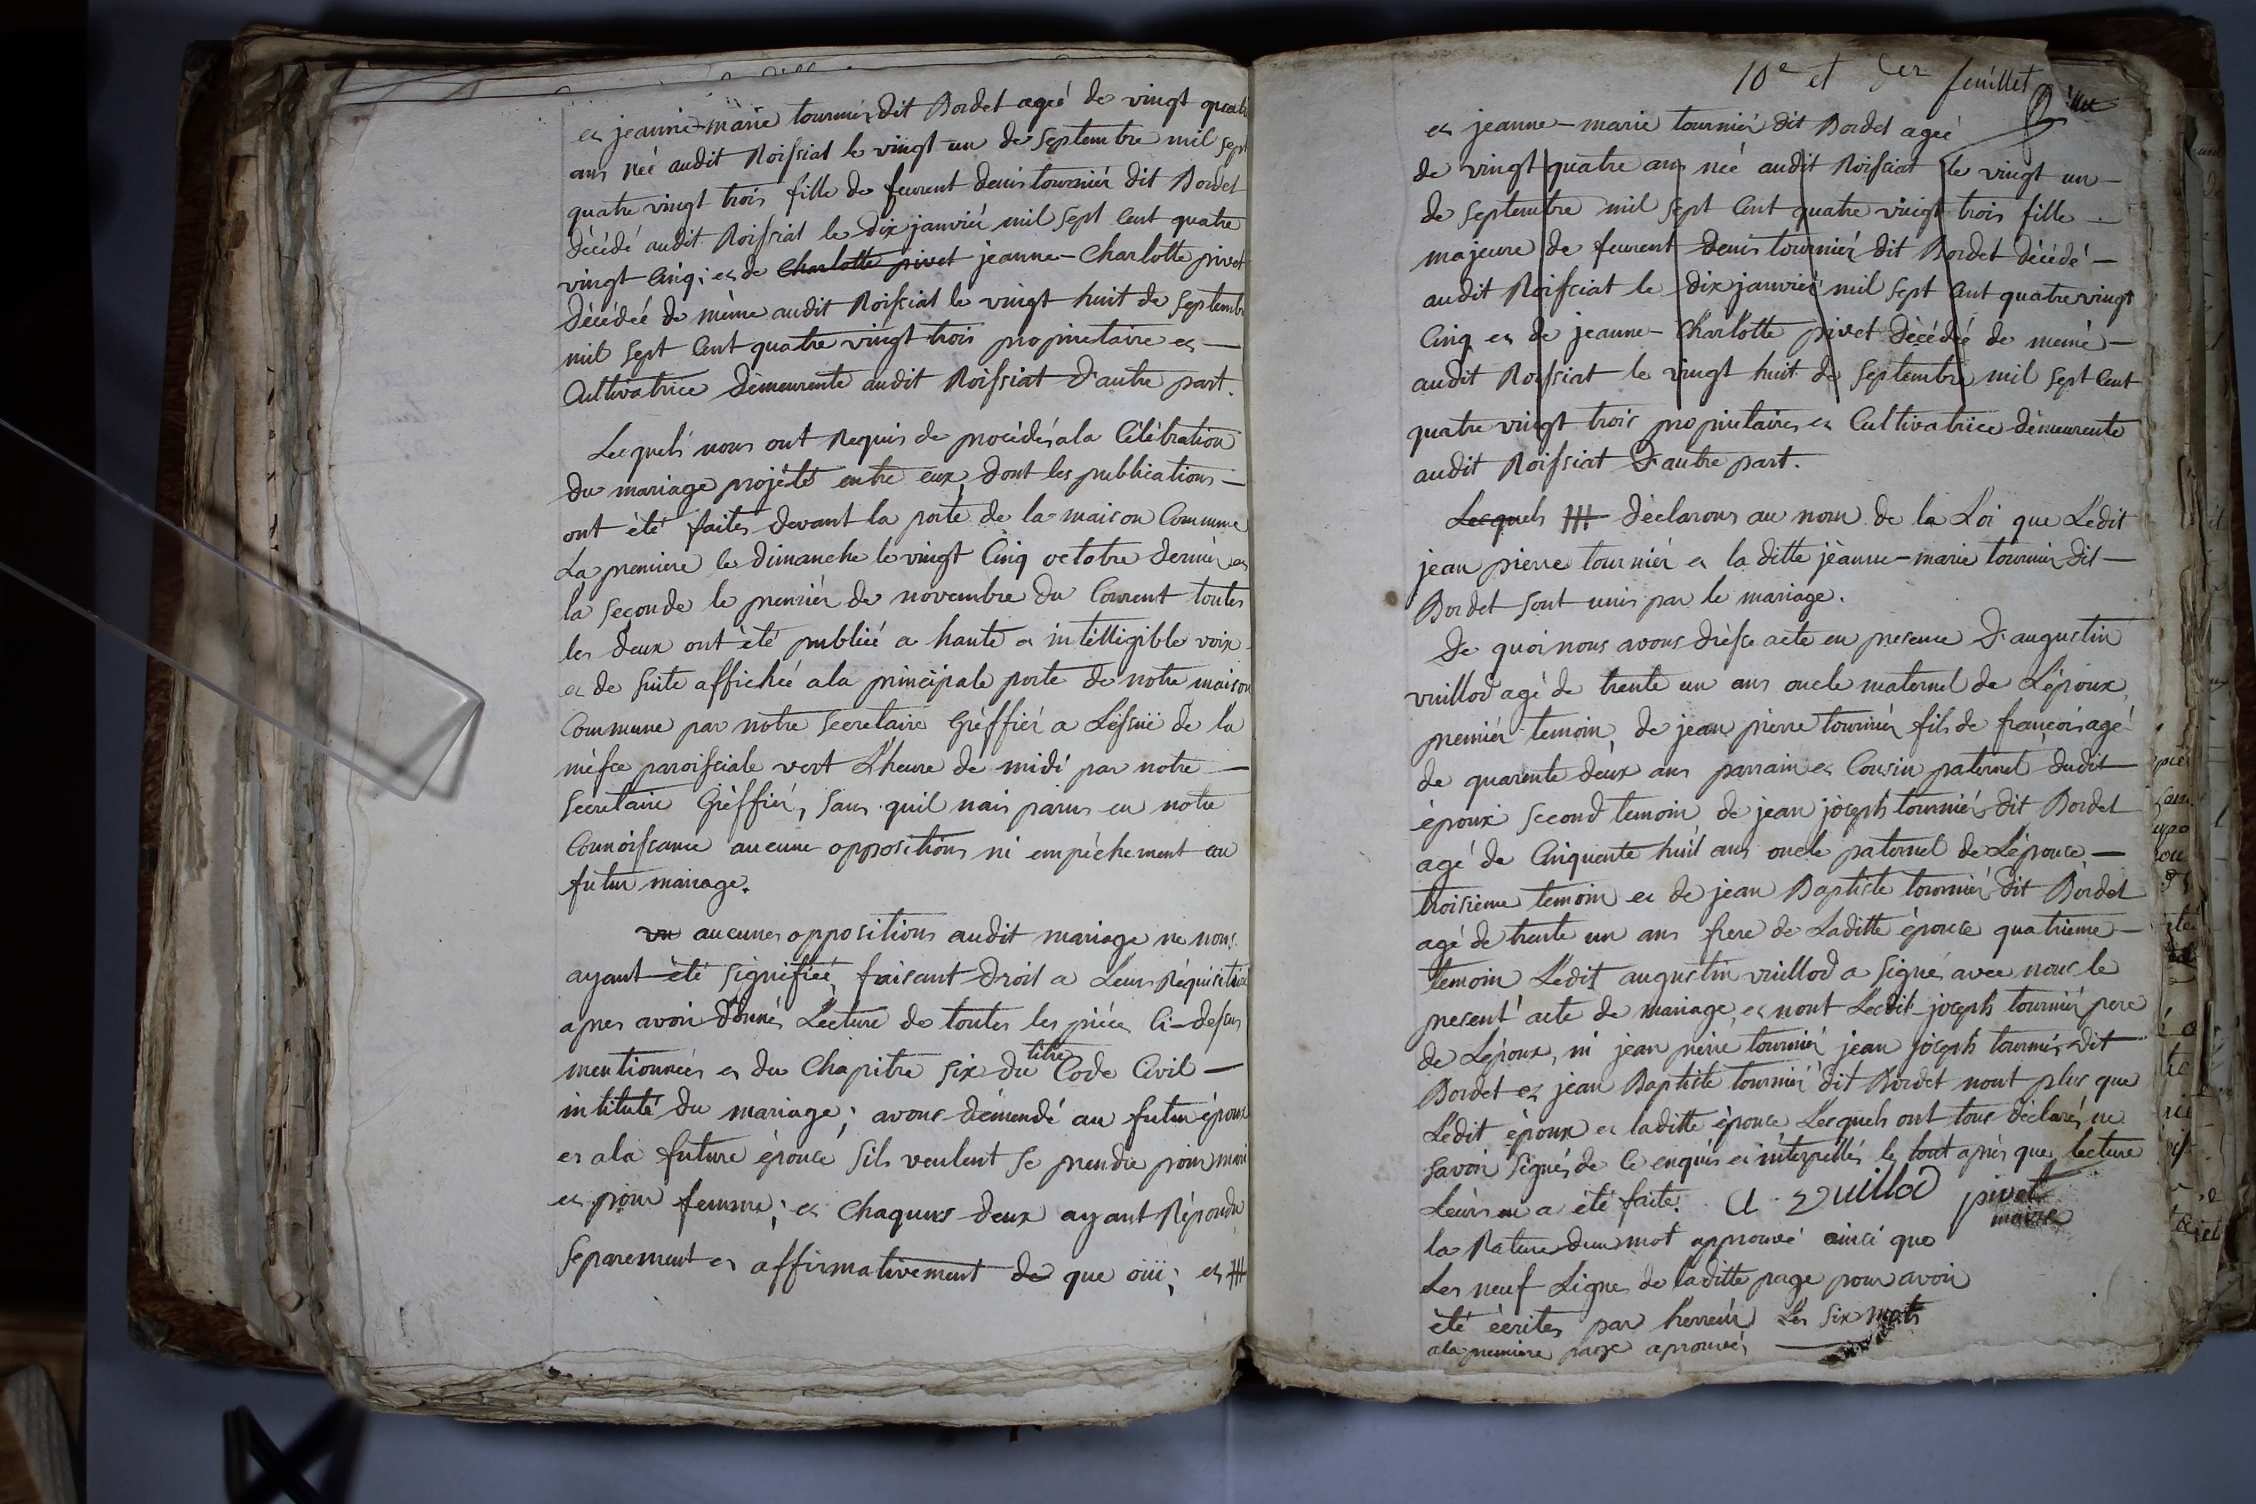 et jeanne-marie tournier dit Bordet ageé de vingt quatre
ans neé audit Roissiat le vingt un de septembre mil sept
quatre vingt trois fille de feurent denis tournier dit Bordet
décédé audit Roissiat le dix janvier mil sept Cent quatre
vingt Cinq; et de Charlotte pivet jeanne-Charlotte pivet
décédeé de même audit Roissiat le vingt huit de septembre
mil sept Cent quatre vingt trois proprietaire et —
Cultivatrice demeurente audit Roissiat d'autre part.
Lesquels nous ont Requis de procéder a la Célébration
du mariage projeté entre eux, dont les publications —
ont été faites devant la porte de la maison Commune
La premiere le dimanche le vingt Cinq octobre dernier et
la seconde le premier de novembre du Courent toutes
les deux ont été publieé a haute et intelligible voix
et de suite afficheé a la principale porte de notre maison
Commune par notre secretaire Greffier a L'essuë de la
mésse paroissiale vert L'heure de midi par notre —
secretaire Gréffier, sans quil nais parus en notre
Connoissance aucune oppositions ni empêchement au
futur mariage.
vu aucunes oppositions audit mariage ne nous
ayant été signifieé, faisant droit a Leurs Réquisition
apres avoir donnés Lecture de toutes les piéces Ci-dessus
mentionneés et du Chapitre six du titre Code Civil —
intitulé du mariage; avons démendé au futur époux
et a la future épouse sils veulent se prendre pour mari
et pour femme; et chaquns deux ayant Répondu
séparement et affirmativement de que oüi; et ###
10e et der feuillet
et jeanne-marie tournier dit Bordet ageé
de vingt quatre ans neé audit Roissiat le vingt un —
de septembre mil sept Cent quatre vingt trois fille —
majeure de feurent denis tournier dit Bordet décédé —
audit Roissiat le dix janvier mil sept Cent quatre vingt
Cinq et de jeanne-Charlotte pivet décédeé de même —
audit Roissiat le vingt huit de septembre mil sept Cent
quatre vingt trois proprietaires et Cultivatrice demeurente
audit Roissiat d'autre part.
Lesquels ### déclarons au nom de la Loi que Ledit
jean pierre tournier et la ditte jeanne-marie tournier dit —
Bordet sont unis par le mariage.
De quoi nous avons drésse acte en presence d'augustin
vuillod agé de trente un ans oncle maternel de L'époux,
premier temoin, de jean pierre tournier fils de francois agé
de quarente deux ans parrain et Cousin paternel dudit —
époux second temoin de jean joseph tournier dit Bordet
agé de Cinquente huit ans oncle paternel de L'épouse —
troisieme temoin et de jean Baptiste tournier dit Bordet
agé de trente un ans frere de Laditte épouse quatriéme —
temoin Ledit augustin vuillod a signé avec nous le
present acte de mariage, et nont Lesdit joseph tournier pere
de L'époux, ni jean pierre tournier jean joseph tournier dit
Bordet et jean Baptiste tournier dit Bordet nont plus que
Ledit époux et laditte épouse Lesquels ont tous déclaré ne
savoir signés de Ce enquis et interpellés le tout aprés que lecture
Leurs en a été faite. A. Vuillod pivet
maire
la Rature dun mot approuvé ainci que
Les neuf Lignes de laditte page pour avoir
été écrites par herreur Les six mots
a la premiere page aprouvés —